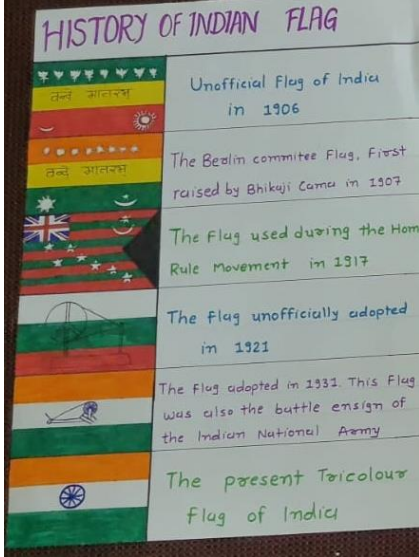 HISTORY OF INDIAN FLAG
वन्दे मातरम
Unofficial Flag of India
in 1906
वन्दे मातरम
The Berlin commitee Flag, First
raised by Bhikaji Cama in 1907
The Flag used during the Hom
Rule Movement in 1917
The Flag unofficially adopted
in 1921
The Flag adopted in 1931. This Flag
was also the battle ensign of
the Indian National Army
The present Tricolour
Flag of India